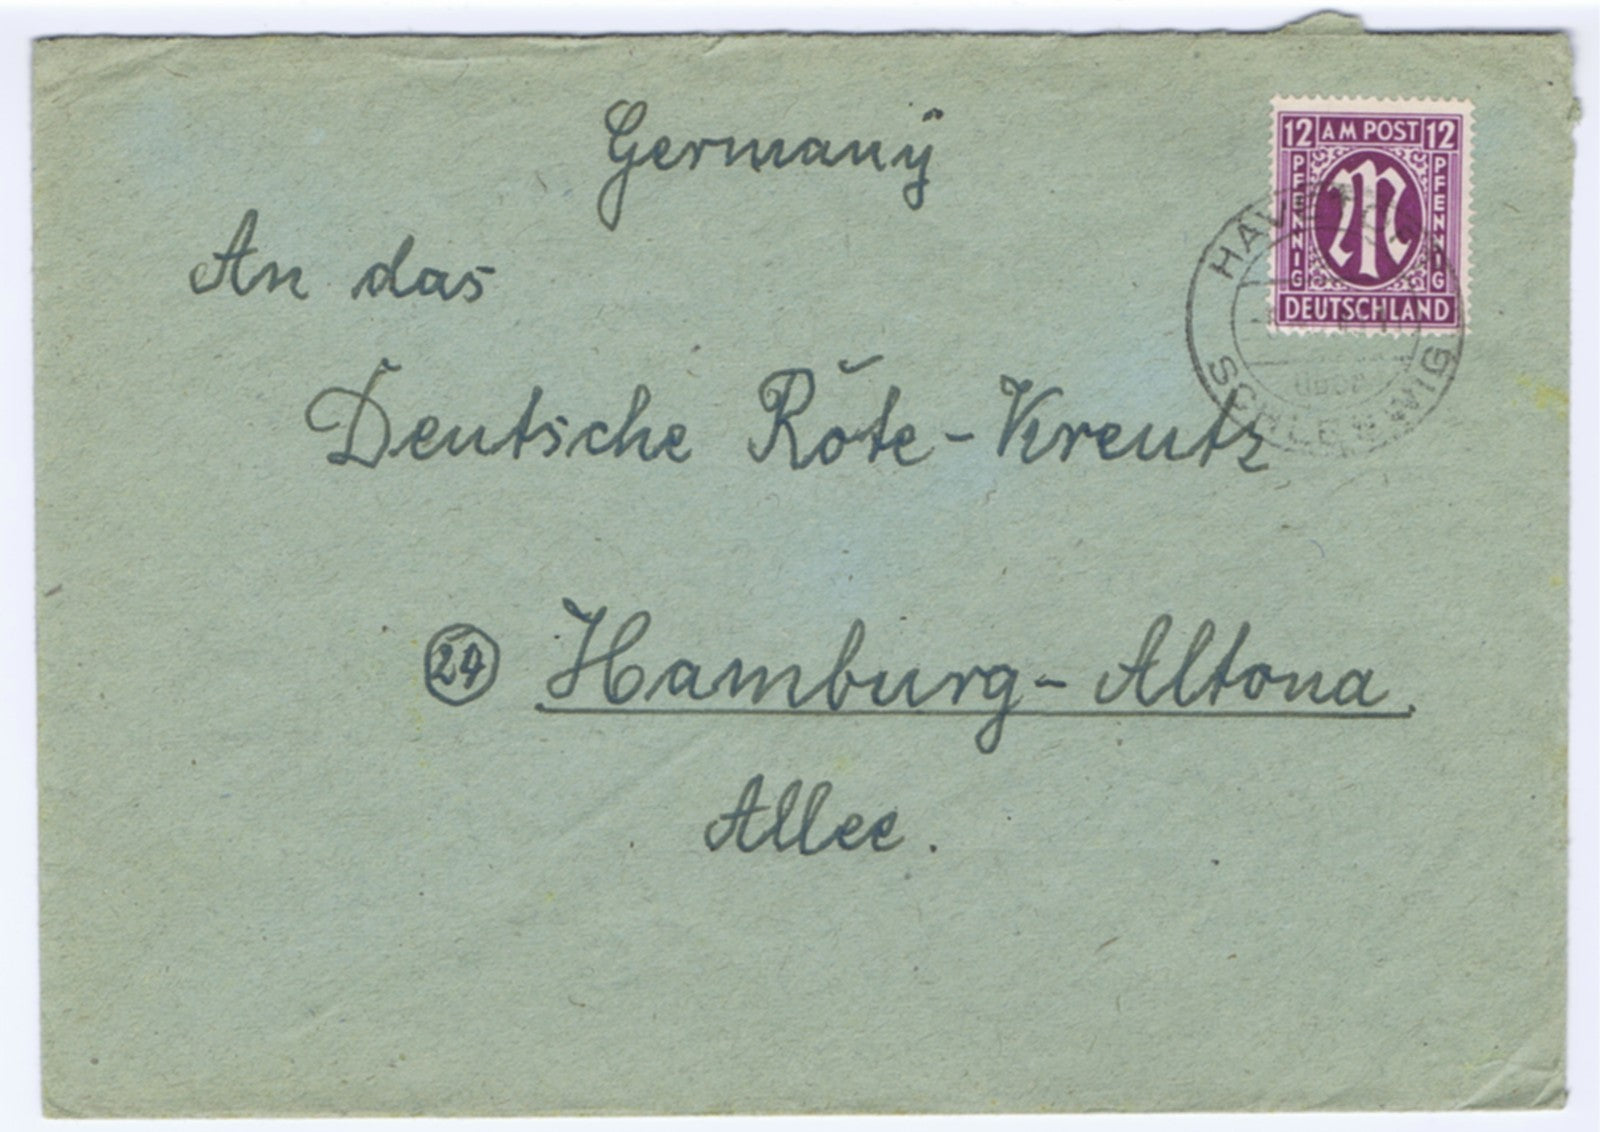 Germanÿ
12 AM POST 12
PFENNIG
PFENNIG
DEUTSCHLAND
SCHLESWIG
An das
Deutsche Röte-Kreutz
24 Hamburg-Altona.
Allee.